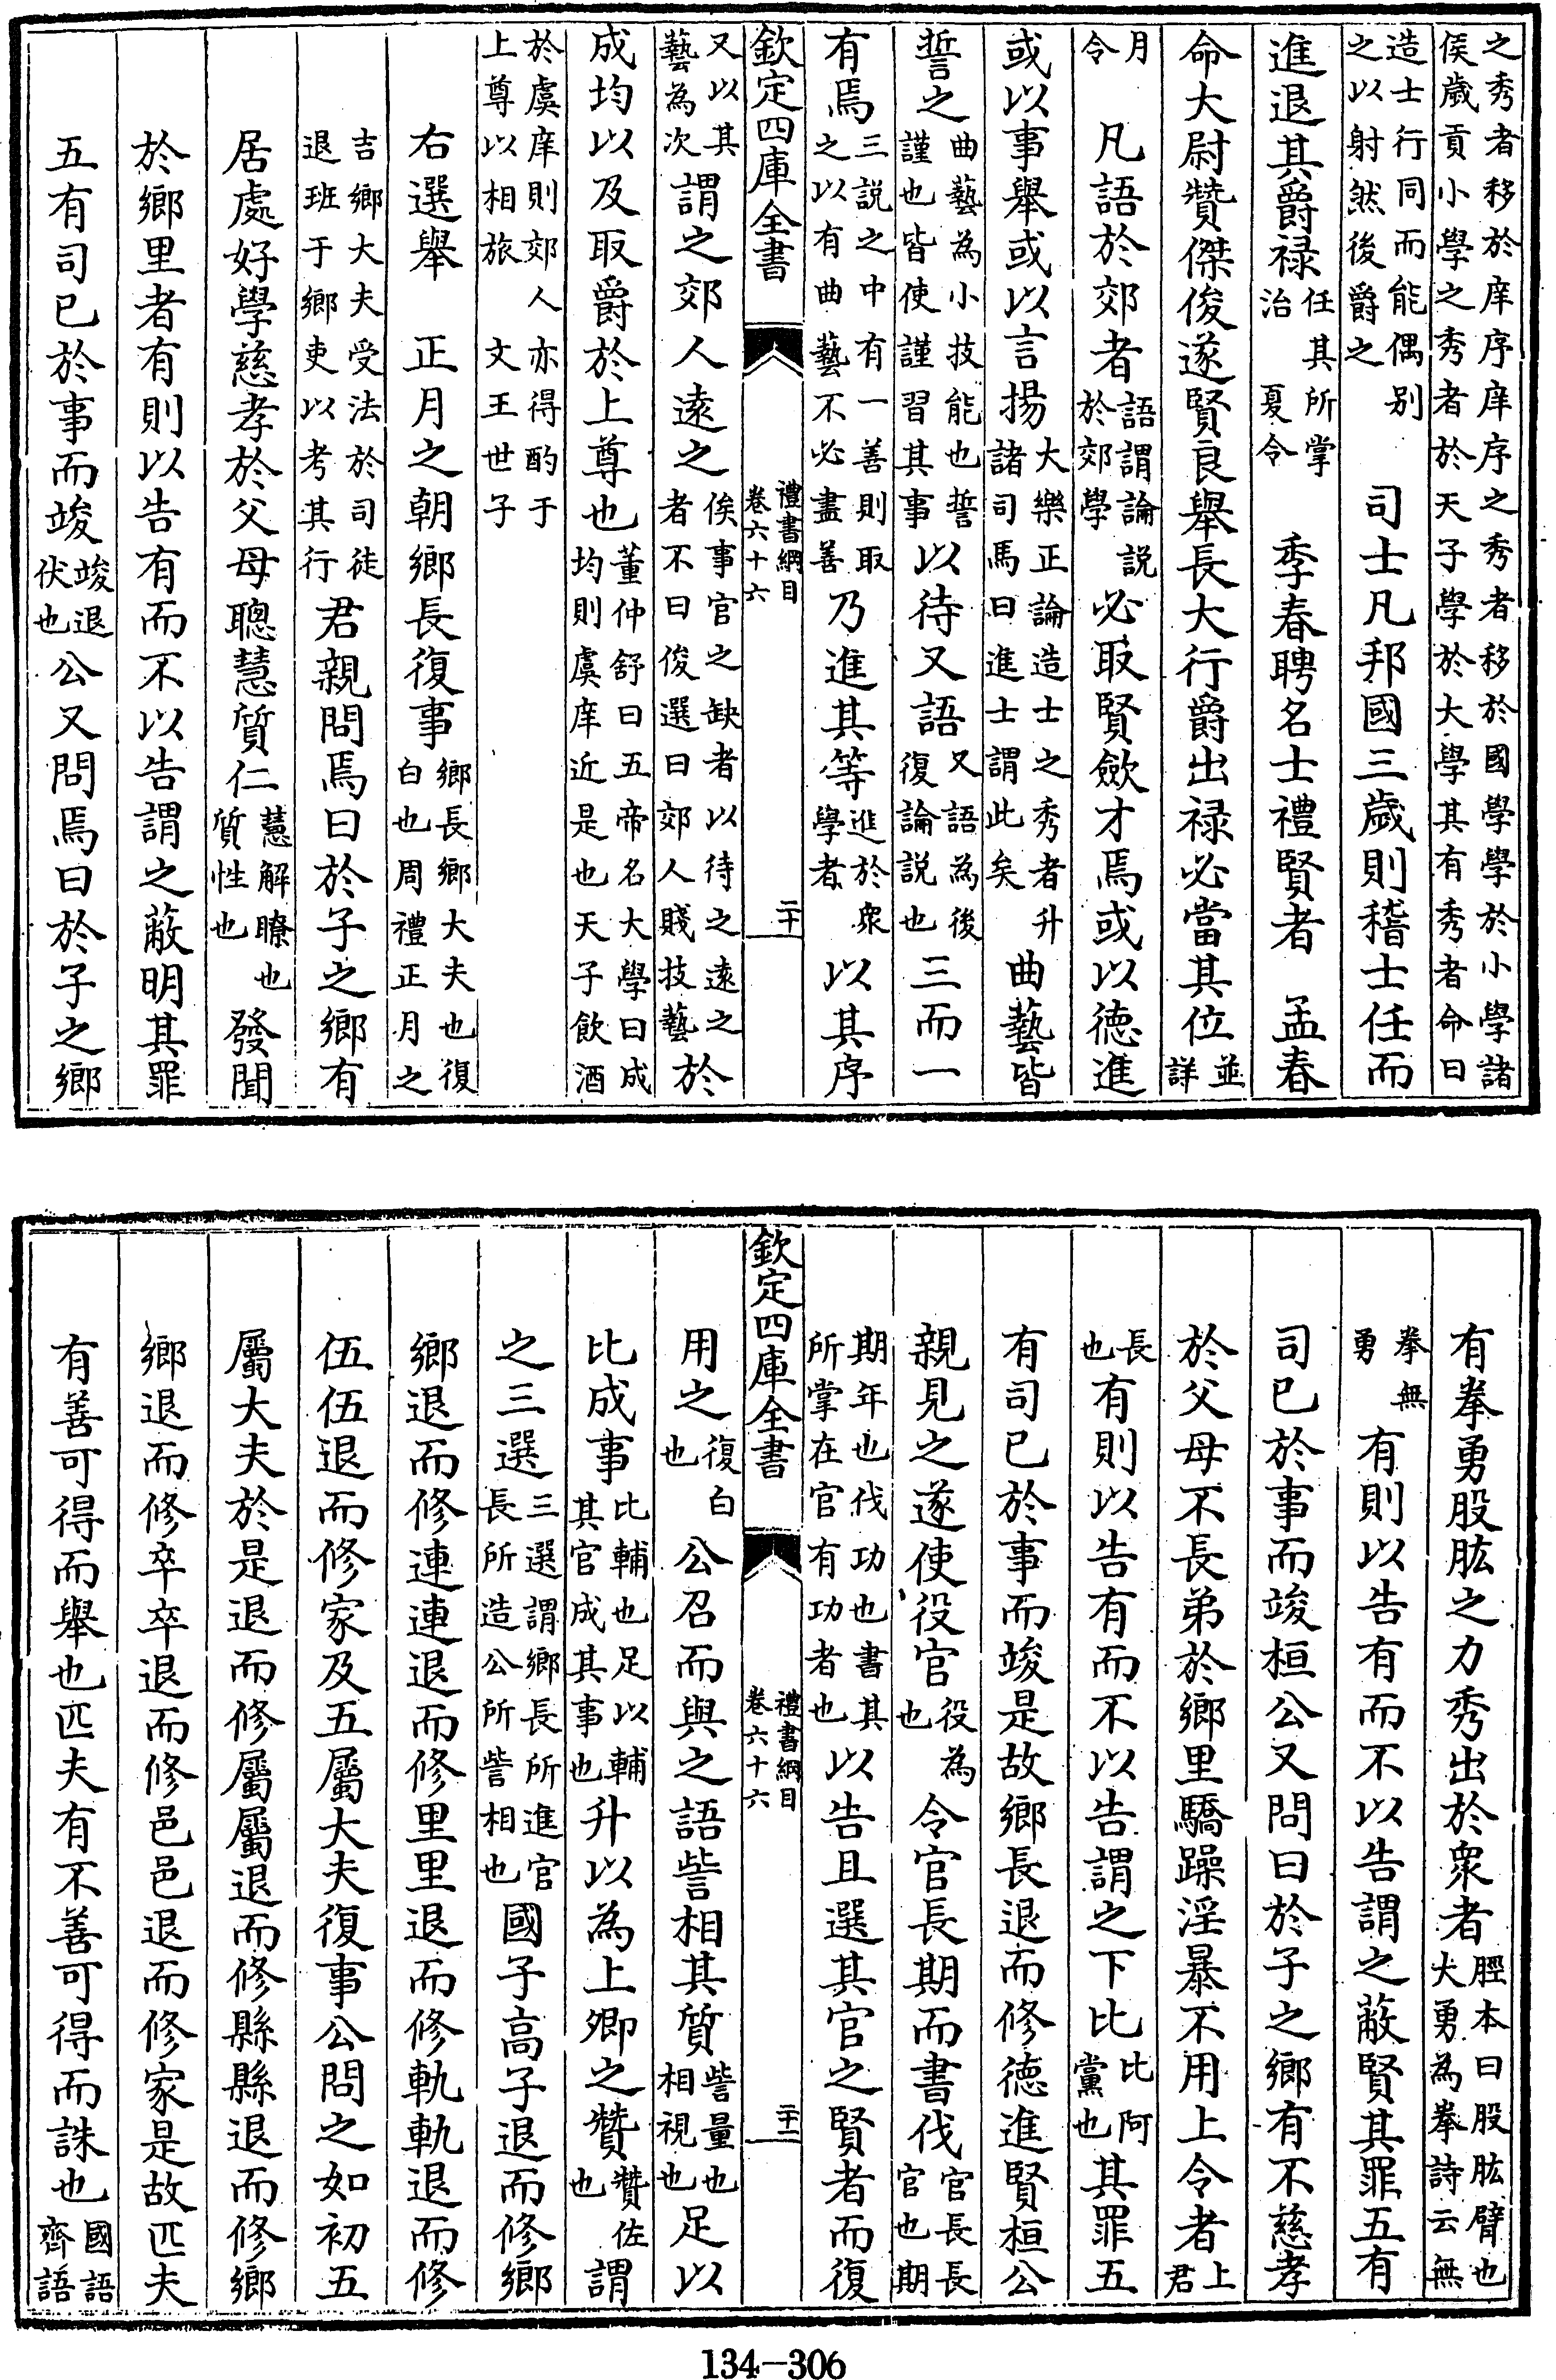 之秀者移於庠序庠序之秀者移於國學學於小學諸
侯歲貢小學之秀者於天子學於大學其有秀者命曰
造士行同而能偶別
之以射然後爵之
司士凡邦國三歲則稽士任而
進退其爵祿任其所掌
治 夏令
季春聘名士禮賢者 孟春
命大尉贊傑俊遂賢良舉長大行爵出祿必當其位並
詳
月
令
凡語於郊者語謂論説
於郊學
必取賢斂才焉或以德進
或以事舉或以言揚大樂正論造士之秀者升
諸司馬曰進士謂此矣
曲藝皆
誓之曲藝為小技能也誓
謹也皆使謹習其事
以待又語又語為後
復論説也
三而一
有焉三説之中有一善則取
之以有曲藝不必盡善
乃進其等進於衆
學者
以其序
欽定四庫全書
禮書綱目
卷六十六
二十
又以其
藝為次
謂之郊人遠之俟事官之缺者以待之遠之
者不曰俊選曰郊人賤技藝
於
成均以及取爵於上尊也董仲舒曰五帝名大學曰成
均則虞庠近是也天子飲酒
於虞庠則郊人亦得酌于
上尊以相旅 文王世子
右選舉 正月之朝鄉長復事鄉長鄉大夫也復
白也周禮正月之
吉鄉大夫受法於司徒
退班于鄉吏以考其行
君親問焉曰於子之鄉有
居處好學慈孝於父母聰慧質仁慧解瞭也
質性也
發聞
於鄉里者有則以告有而不以告謂之蔽明其罪
五有司已於事而竣竣退
伏也
公又問焉曰於子之鄉
有拳勇股肱之力秀出於衆者脛本曰股肱臂也
大勇為拳詩云無
拳無
勇
有則以告有而不以告謂之蔽賢其罪五有
司已於事而竣桓公又問曰於子之鄉有不慈孝
於父母不長弟於鄉里驕躁淫暴不用上令者上
君
長
也
有則以告有而不以告謂之下比比阿
黨也
其罪五
有司已於事而竣是故鄉長退而修德進賢桓公
親見之遂使役官役為
也
令官長期而書伐官長長
官也期
期年也伐功也書其
所掌在官有功者也
以告且選其官之賢者而復
欽定四庫全書
禮書綱目
卷六十六
二十一
用之復白
也
公召而與之語訾相其質訾量也
相視也
足以
比成事比輔也足以輔
其官成其事也
升以為上卿之贊贊佐
也
謂
之三選三選謂鄉長所進官
長所造公所訾相也
國子高子退而修鄉
鄉退而修連連退而修里里退而修軌軌退而修
伍伍退而修家及五屬大夫復事公問之如初五
屬大夫於是退而修屬屬退而修縣縣退而修鄉
鄉退而修卒卒退而修邑邑退而修家是故匹夫
有善可得而舉也匹夫有不善可得而誅也國語
齊語
134-306